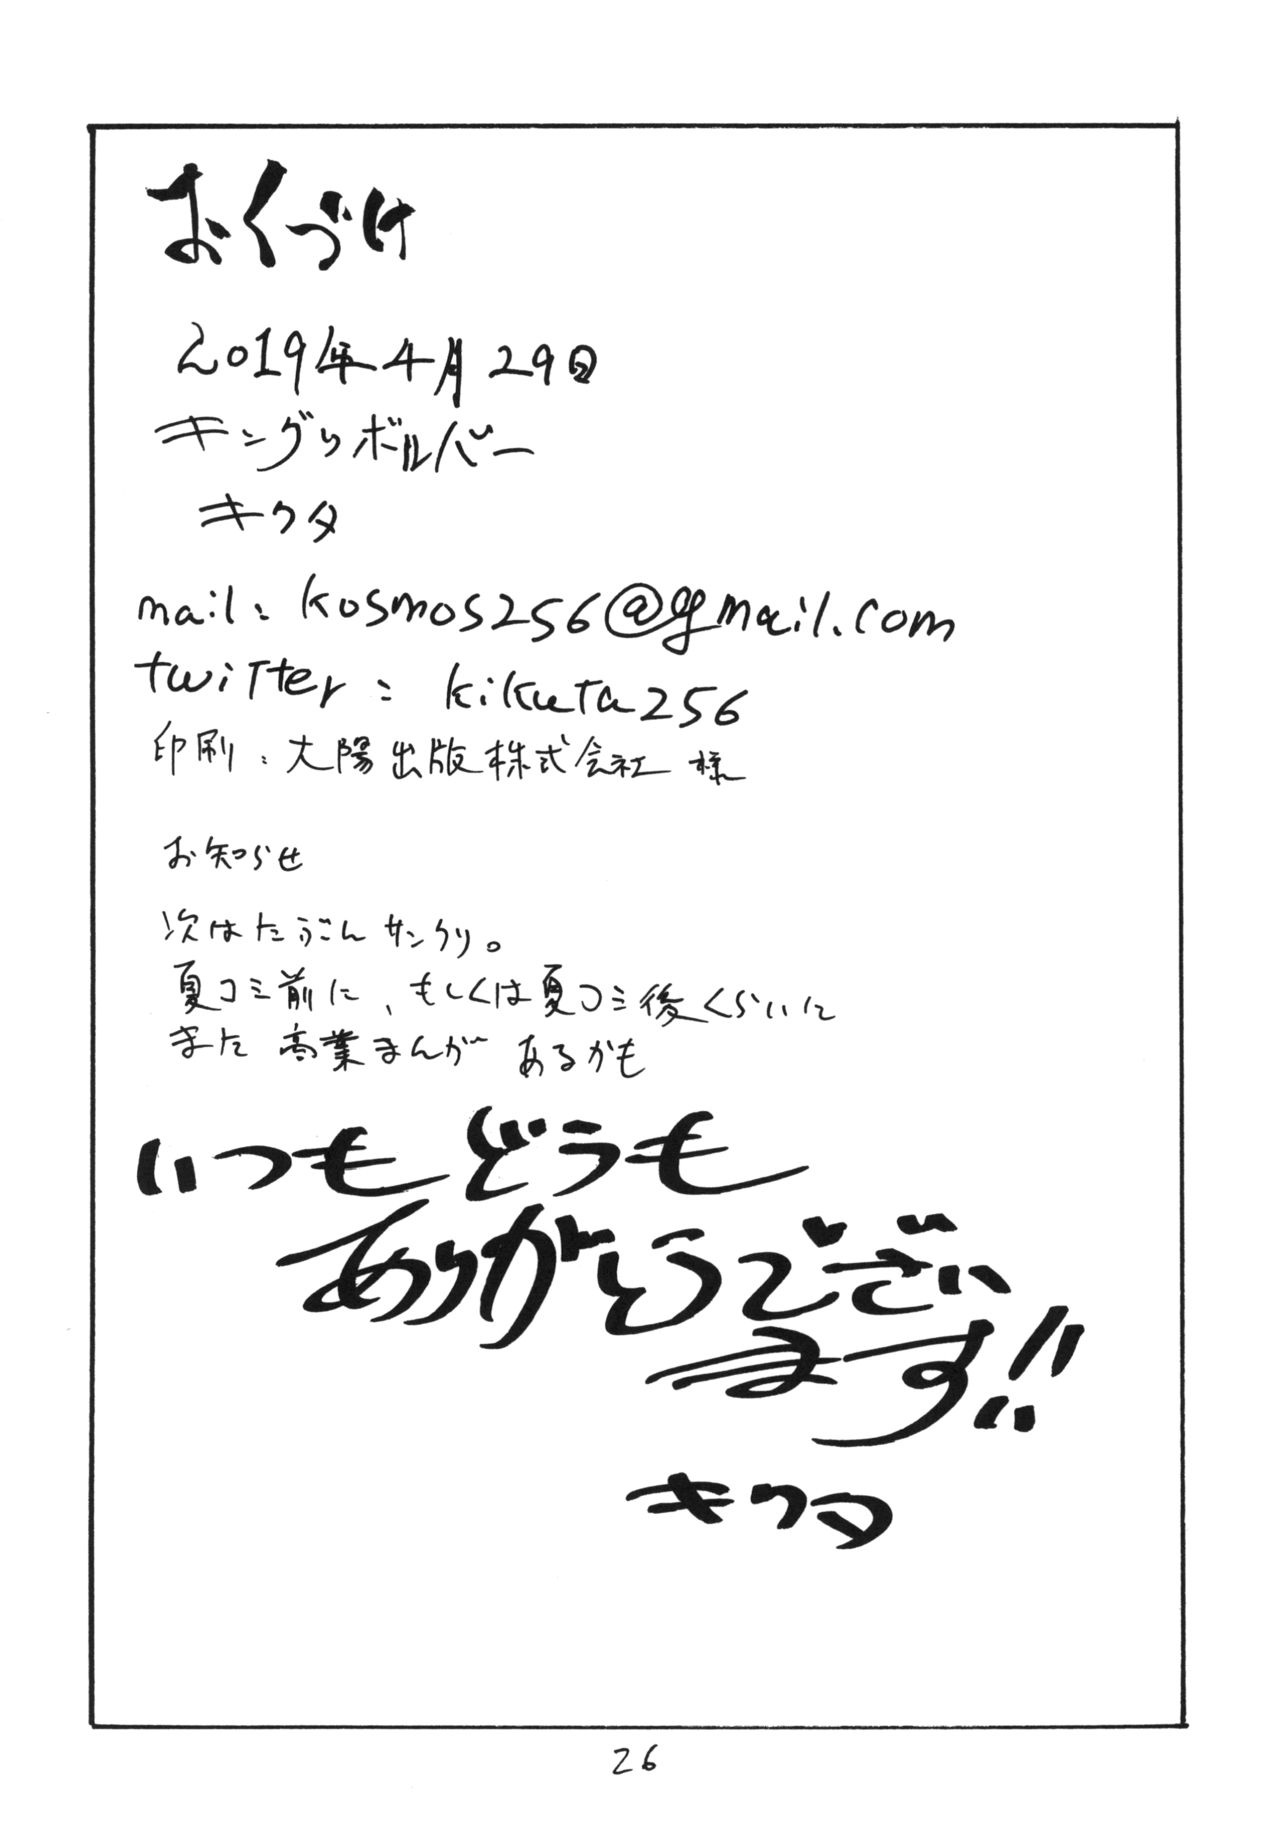 おくづけ
2019年4月29日
キングリボルバー
キクタ
mail: kosmos256@gmail.com
twitter: kikuta256
印刷: 大陽出版株式会社 様
お知らせ
次はたぶんサンクリ。
夏コミ前に、もしくは夏コミ後くらいに
また商業まんが あるかも
いつもどうも
ありがとうござい
ます!!
キクタ
26